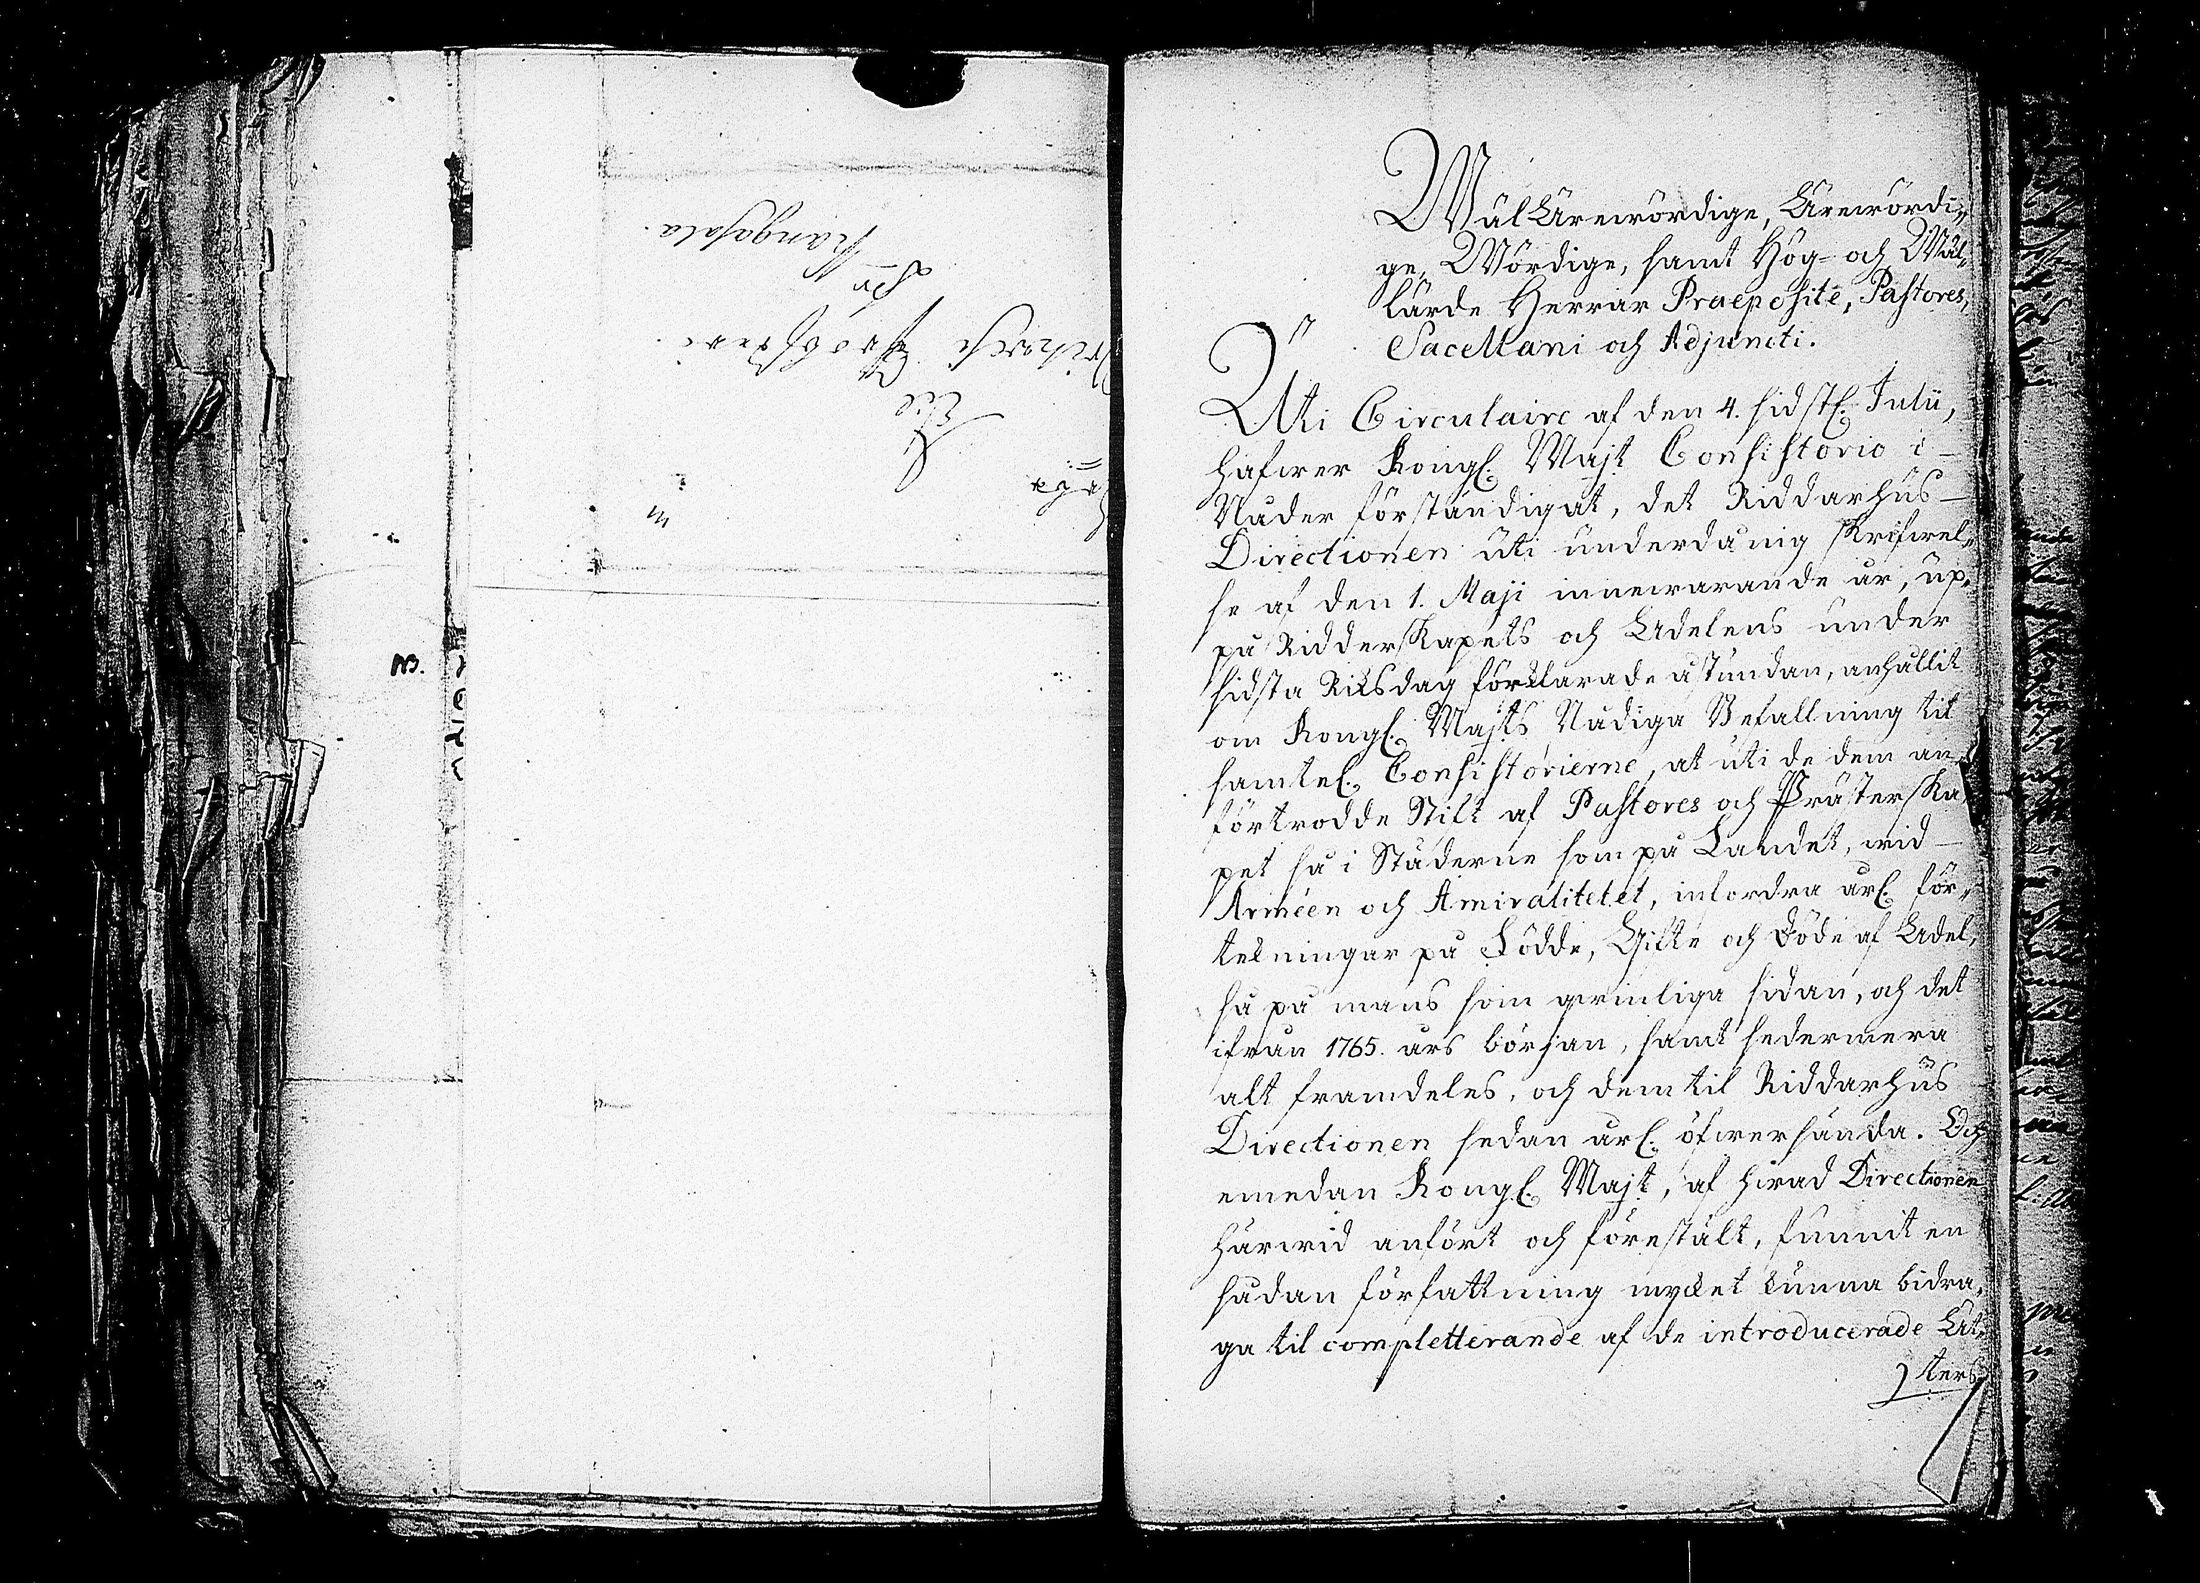 NB.
Til
Probsteri
Kangasala.
WälÄrewördige, Ärewördi-
ge, Wördige, samt Hög- och Wäl-
lärde Herrar Praepositi, Pastores,
Sacellani och Adjuncti.
Uti Circulaire af den 4. sidstl. Julii,
hafwer Kongl. Majt Consistorio i
Nåder förständigat, det Riddarhus-
Directionen uti underdånig skrifwel-
se af den 1. Maji innewarande år, up-
på Ridderskapets och Adelens under
sidsta Riksdag förklarade åstundan, anhållit
om Kongl. Majts Nådiga Befallning til
samtel. Consistorierne, at uti de dem an-
förtrodde Stift af Pastores och Prästerska-
pet så i Städerne som på Landet, wid
Arméen och Amiralitetet, infordra årl. för-
tekningar på Födde, Gifte och Döde af Adel,
så på mans som qwinliga sidan, och det
ifrån 1765. års början, samt sedermera
alt framdeles, och dem til Riddarhus
Directionen sedan årl. öfwersända. Och
emedan Kongl. Majt, af hwad Directionen
härwid anfört och förestält, funnit en
sådan författning mycket kunna bidra-
ga til completterande af de introducerade Ät-
ters